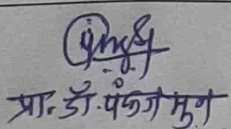 प्रा. डॉ. पंकज मुन